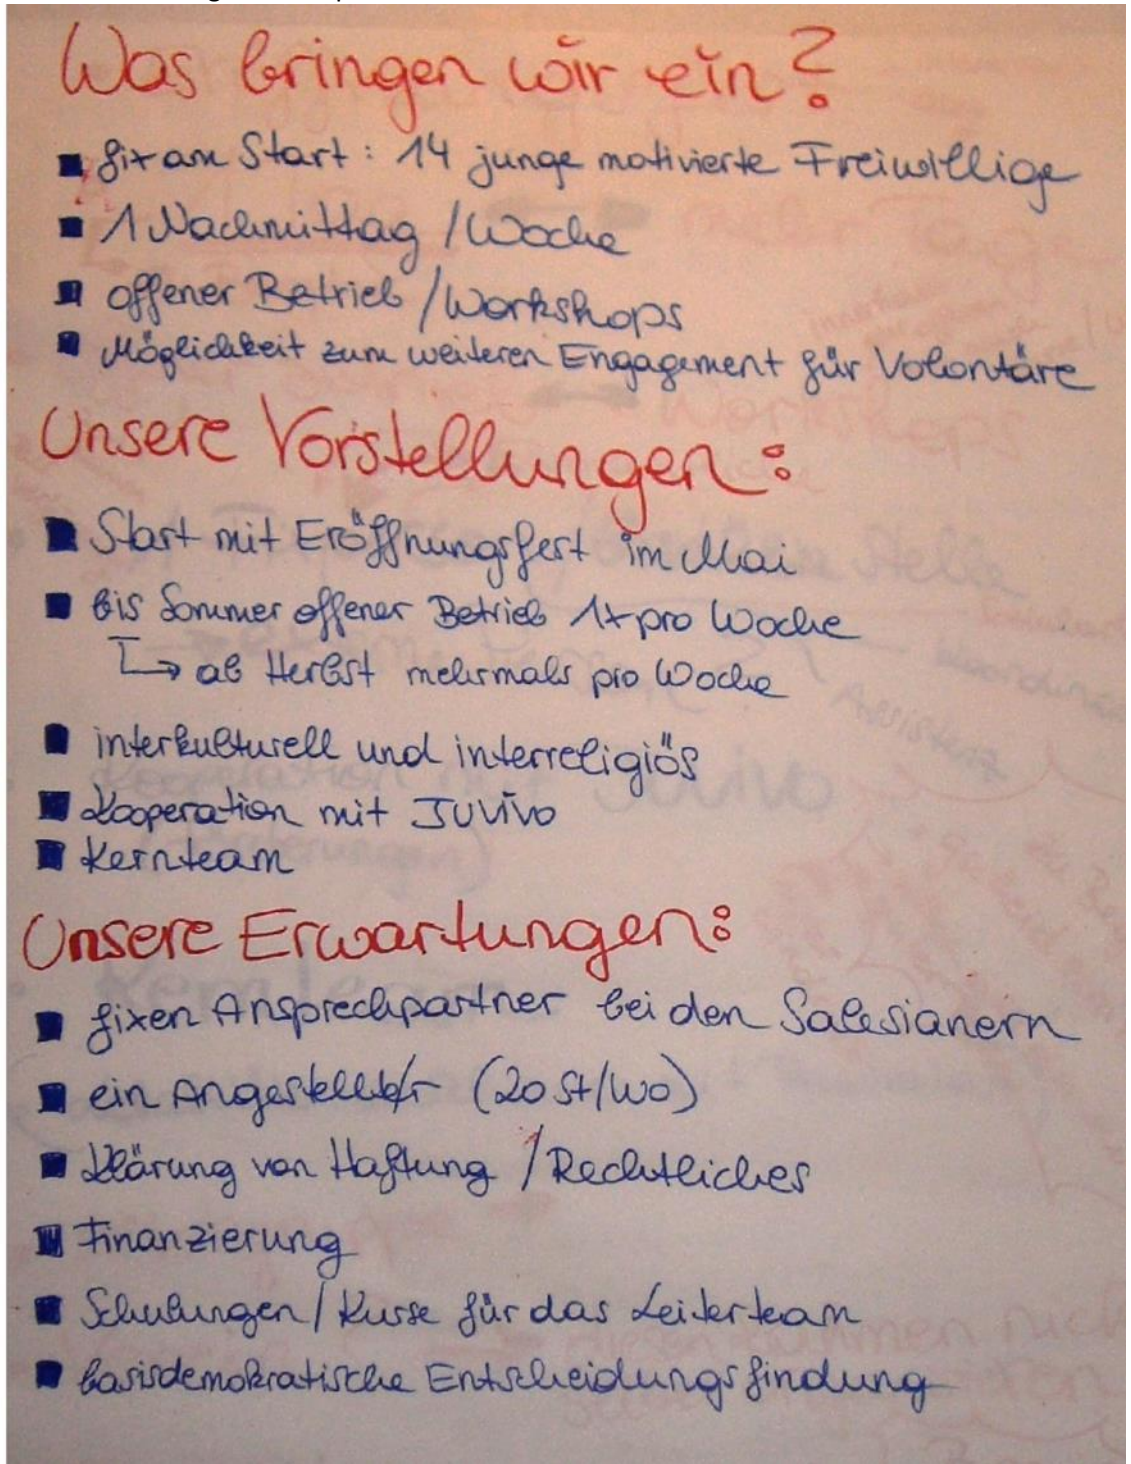 Was bringen wir ein?
fix am Start: 14 junge motivierte Freiwillige
1 Nachmittag / Woche
offener Betrieb / Workshops
Möglichkeit zum weiteren Engagement für Volontäre
Unsere Vorstellungen:
Start mit Eröffnungsfest im Mai
bis Sommer offener Betrieb 1x pro Woche
→ ab Herbst mehrmals pro Woche
interkulturell und interreligiös
Kooperation mit JUVIVO
Kernteam
Unsere Erwartungen:
fixen Ansprechpartner bei den Salesianern
ein Angestellte/r (20 St/Wo)
Klärung von Haftung / Rechtliches
Finanzierung
Schulungen / Kurse für das Leiterteam
basisdemokratische Entscheidungsfindung